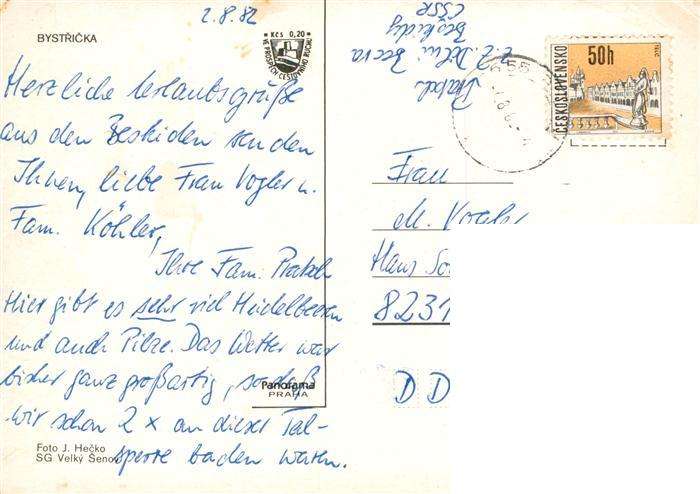 BYSTŘIČKA
2.8.82
Kčs 0,20
VE PROSPĚCH ČESTOVNÍHO RUCHU
Herzliche Urlaubsgrüße
aus den Beskiden senden
Ihnen, liebe Frau Vogler u.
Fam. Köhler,
Ihre Fam.
Hier gibt es sehr viel Heidelbeeren
und auch Pilze. Das Wetter war
bisher ganz großartig, so daß
wir schon 2 x an dieser Tal-
sperre baden waren.
Foto J. Hečko
SG Velký Šenov
Panorama
PRAHA
z. Z. Dolní Bečva
Beskidy
ČSSR
50h
ČESKOSLOVENSKO
TELČ
Frau
M.
Hans
8231
DD